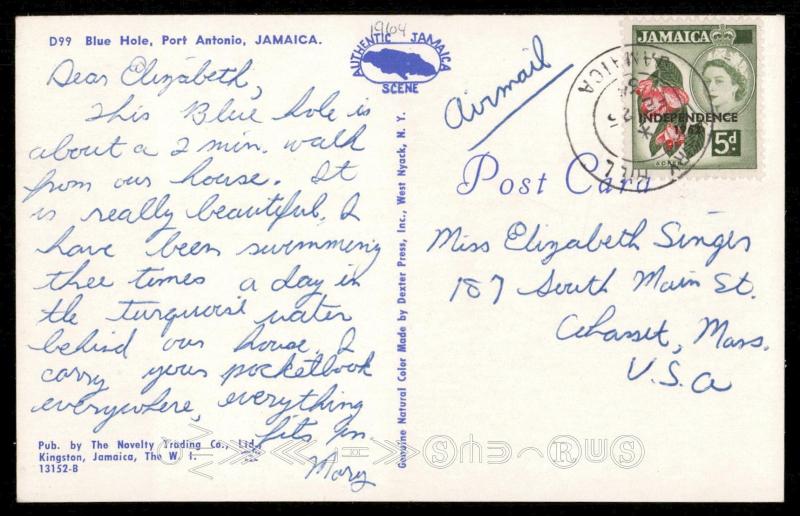 D99 Blue Hole, Port Antonio, JAMAICA.
1964
AUTHENTIC JAMAICA
SCENE
Dear Elizabeth,
This Blue hole is
about a 2 min. walk
from our house. It
is really beautiful. I
have been swimming
three times a day in
the turquoise water
behind our house. I
carry your pocketbook
everywhere, everything
fits in
Mary
Pub. by The Novelty Trading Co., Ltd.,
Kingston, Jamaica, The W. I.
13152-B
Genuine Natural Color Made by Dexter Press, Inc., West Nyack, N. Y.
Airmail
JAMAICA
INDEPENDENCE
5d
ACKEE
JAMAICA
HILL
Post Card
Miss Elizabeth Singer
187 South Main St.
Cohasset, Mass.
U.S.A
R US